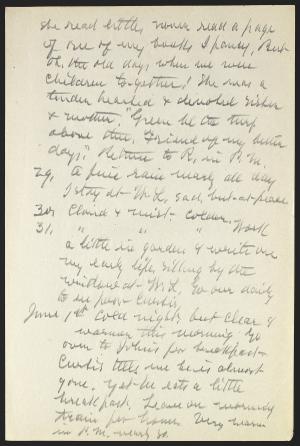 she read little, never read a page
of one of my books I fancy. But
Oh, the old days when we were
children together! She was a
tender hearted & devoted sister
& mother. "Green be the turf
above thee, Friend of my better
days." Return to R. in P.M.
29, A fine rain nearly all day
I stay at W.L. sad, but at peace
30, Cloud & mist. Colder.
31, " " " Work
a little in garden & write on
my early life, sitting by the
window at W.L. Go over daily
to see poor Curtis,
June 1st Cold night but clear &
warmer this morning. Go
over to John's for breakfast -
Curtis tells me he is almost
gone. Yet he eats a little
breakfast. Leave on noonday
train for home. Very warm
in P.M. nearly 80.